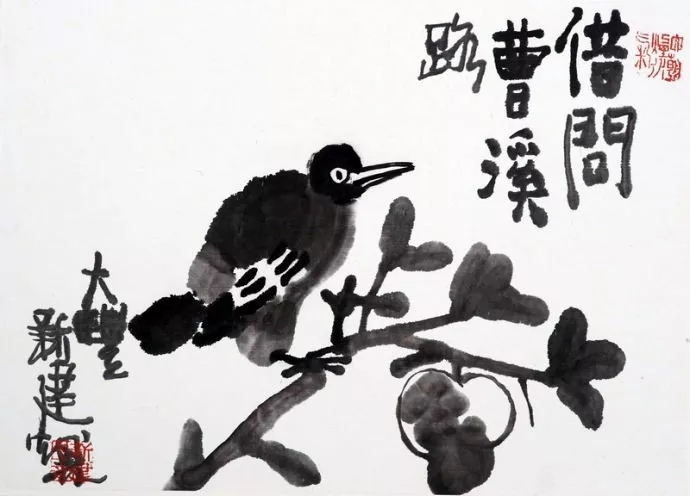 借問
曹溪
路
大豐
新建